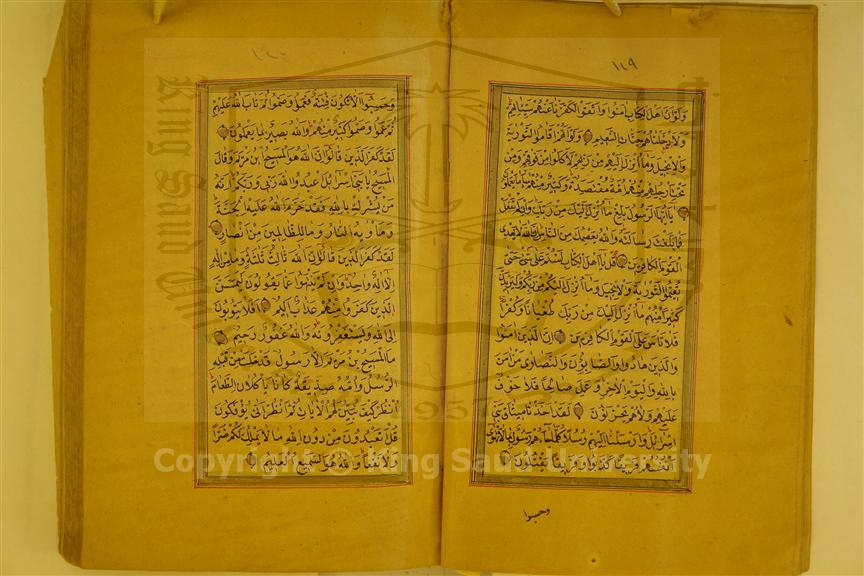 ١٤٩
ولو ان اهل الكتاب امنوا واتقوا لكفرنا عنهم سيئاتهم
ولادخلناهم جنات النعيم ولو انهم اقاموا التورية
والانجيل وما انزل اليهم من ربهم لاكلوا من فوقهم ومن
تحت ارجلهم منهم امة مقتصدة وكثير منهم ساء ما يعملون
يا ايها الرسول بلغ ما انزل اليك من ربك وان لم تفعل
فما بلغت رسالته والله يعصمك من الناس ان الله لا يهدى
القوم الكافرين قل يا اهل الكتاب لستم على شئ حتى
تقيموا التورية والانجيل وما انزل اليكم من ربكم وليزيدن
كثيرا منهم ما انزل اليك من ربك طغيانا وكفرا
فلا تاس على القوم الكافرين ان الذين امنوا
والذين هادوا والصابؤن والنصارى من امن
بالله واليوم الاخر وعمل صالحا فلا خوف
عليهم ولا هم يحزنون لقد اخذنا ميثاق بنى
اسرائيل وارسلنا اليهم رسلا كلما جاءهم رسول بما لا تهوى
انفسهم فريقا كذبوا وفريقا يقتلون
وحسبوا
وحسبوا الا تكون فتنة فعموا وصموا ثم تاب الله عليهم
ثم عموا وصموا كثير منهم والله بصير بما يعملون
لقد كفر الذين قالوا ان الله هو المسيح ابن مريم وقال
المسيح يا بنى اسرائيل اعبدوا الله ربى وربكم انه
من يشرك بالله فقد حرم الله عليه الجنة
وماويه النار وما للظالمين من انصار
لقد كفر الذين قالوا ان الله ثالث ثلثة وما من اله
الا اله واحد وان لم ينتهوا عما يقولون ليمسن
الذين كفروا منهم عذاب اليم افلا يتوبون
الى الله ويستغفرونه والله غفور رحيم
ما المسيح ابن مريم الا رسول قد خلت من قبله
الرسل وامه صديقة كانا ياكلان الطعام
انظر كيف نبين لهم الايات ثم انظر انى يؤفكون
قل اتعبدون من دون الله ما لا يملك لكم ضرا
ولا نفعا والله هو السميع العليم
King Saud University
1957
Copyright © King Saud University